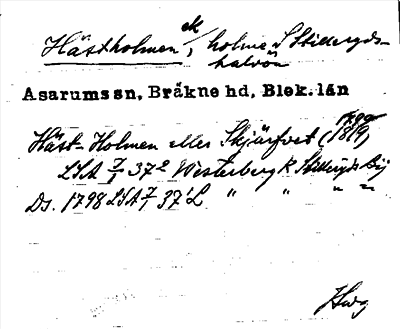 Hästholmen, ek holme S Stillerydshalvön
Asarums sn, Bräkne hd, Blek. län
Häst-Holmen eller Skjärfvet (1819)
LSA 7/1 37² Westerberg k Stilleryds by
Ds. 1798 LSA 7/1 37¹ L " " " "
Hwg